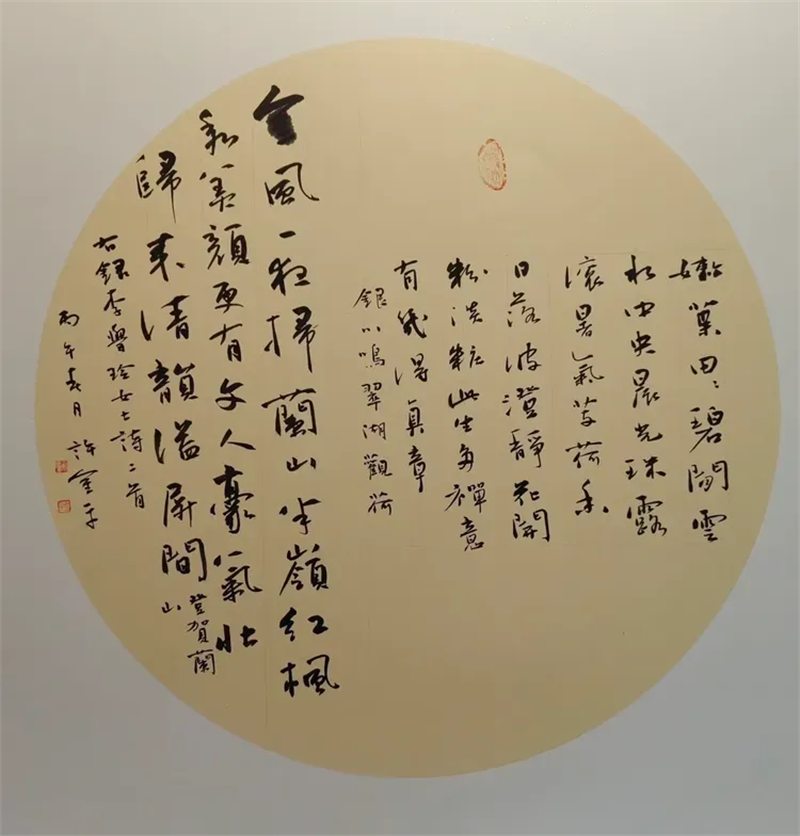 嫩葉田〻碧閒雲
水中央晨光珠露
滾暑氣芰荷香
日落波澄靜花開
粉淡粧此生多禪意
有幾得真章
銀川鳴翠湖觀荷
金風一夜掃蘭山半嶺紅楓
顔更有文人豪氣壯
歸來清韻溢屏間
登賀蘭
山
右錄李學玲女士詩二首
丙午春月 許金平